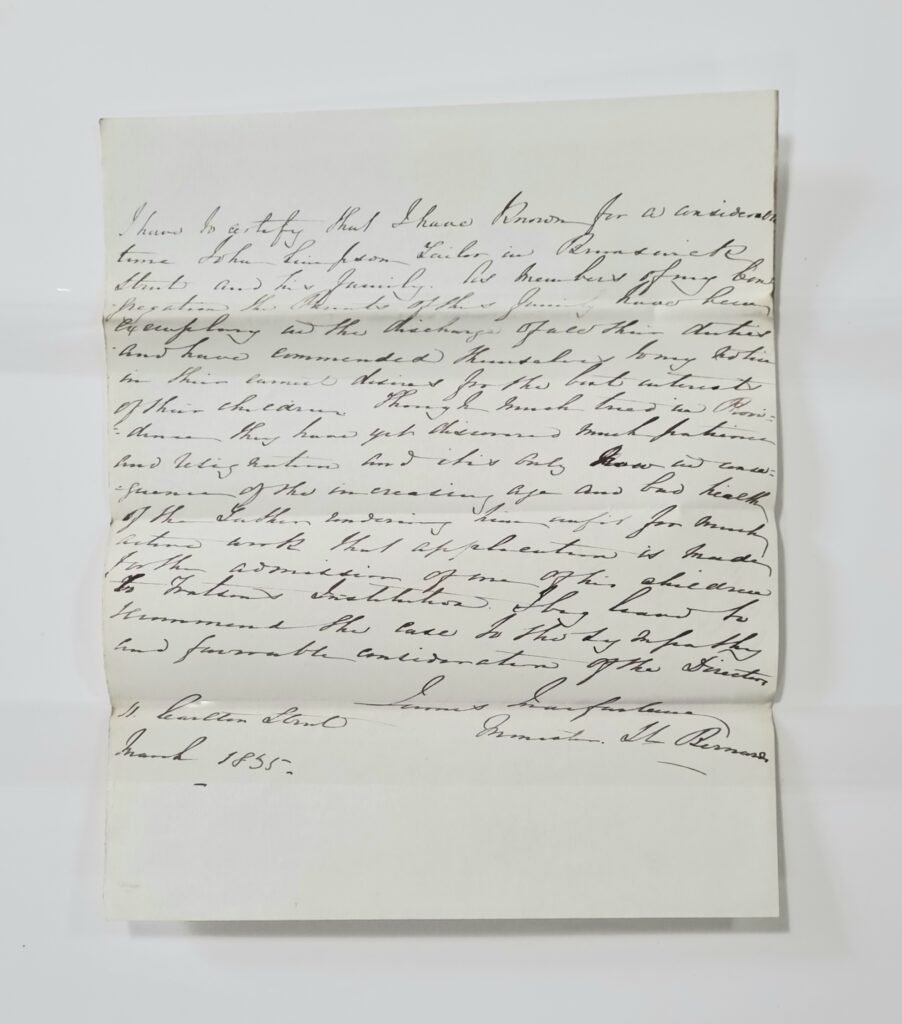 I have to certify that I have Known for a considerable
time John Simpson Tailor in Brunswick
Street and his family. As members of my Con
gregation the Parents of this family have been
exemplary in the discharge of all their duties
and have commended themselves to my notice
in their earnest desires for the best interests
of their children Though much tried in Provi-
-dence they have yet discovered much patience
and resignation and it is only now in conse-
-quence of the increasing age and bad health
of the Father rendering him unfit for much
active work that application is made
for the admission of one of his children
to Watson's Institution. I beg leave to
recommend the case to the sympathy
and favorable consideration of the Directors
James Macfarlane
Minister. St Bernards
11. Carlton Street
March 1855.